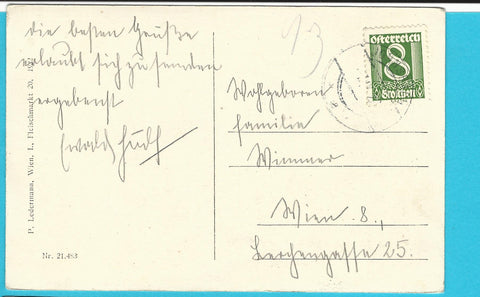 die besten Grüße
erlaubt sich zu senden
ergebenst
Ewald
13
Österreich
8
Groschen
Wohlgeboren
Familie
Wimmer
Wien 8.,
Lerchengasse 25.
P. Ledermann, Wien, I., Fleischmarkt 20,
Nr. 21.483